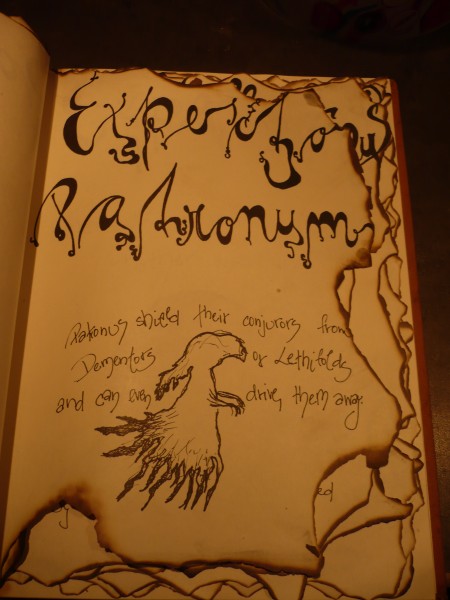 Patronum
Patronus shield their conjurors from
Dementors or Lethifolds
and can even drive them away.
ed